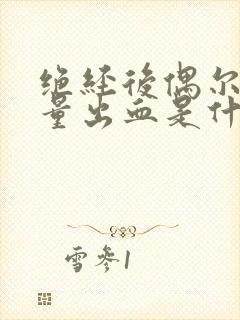 绝经後偶尔
量出血是什
雪参1